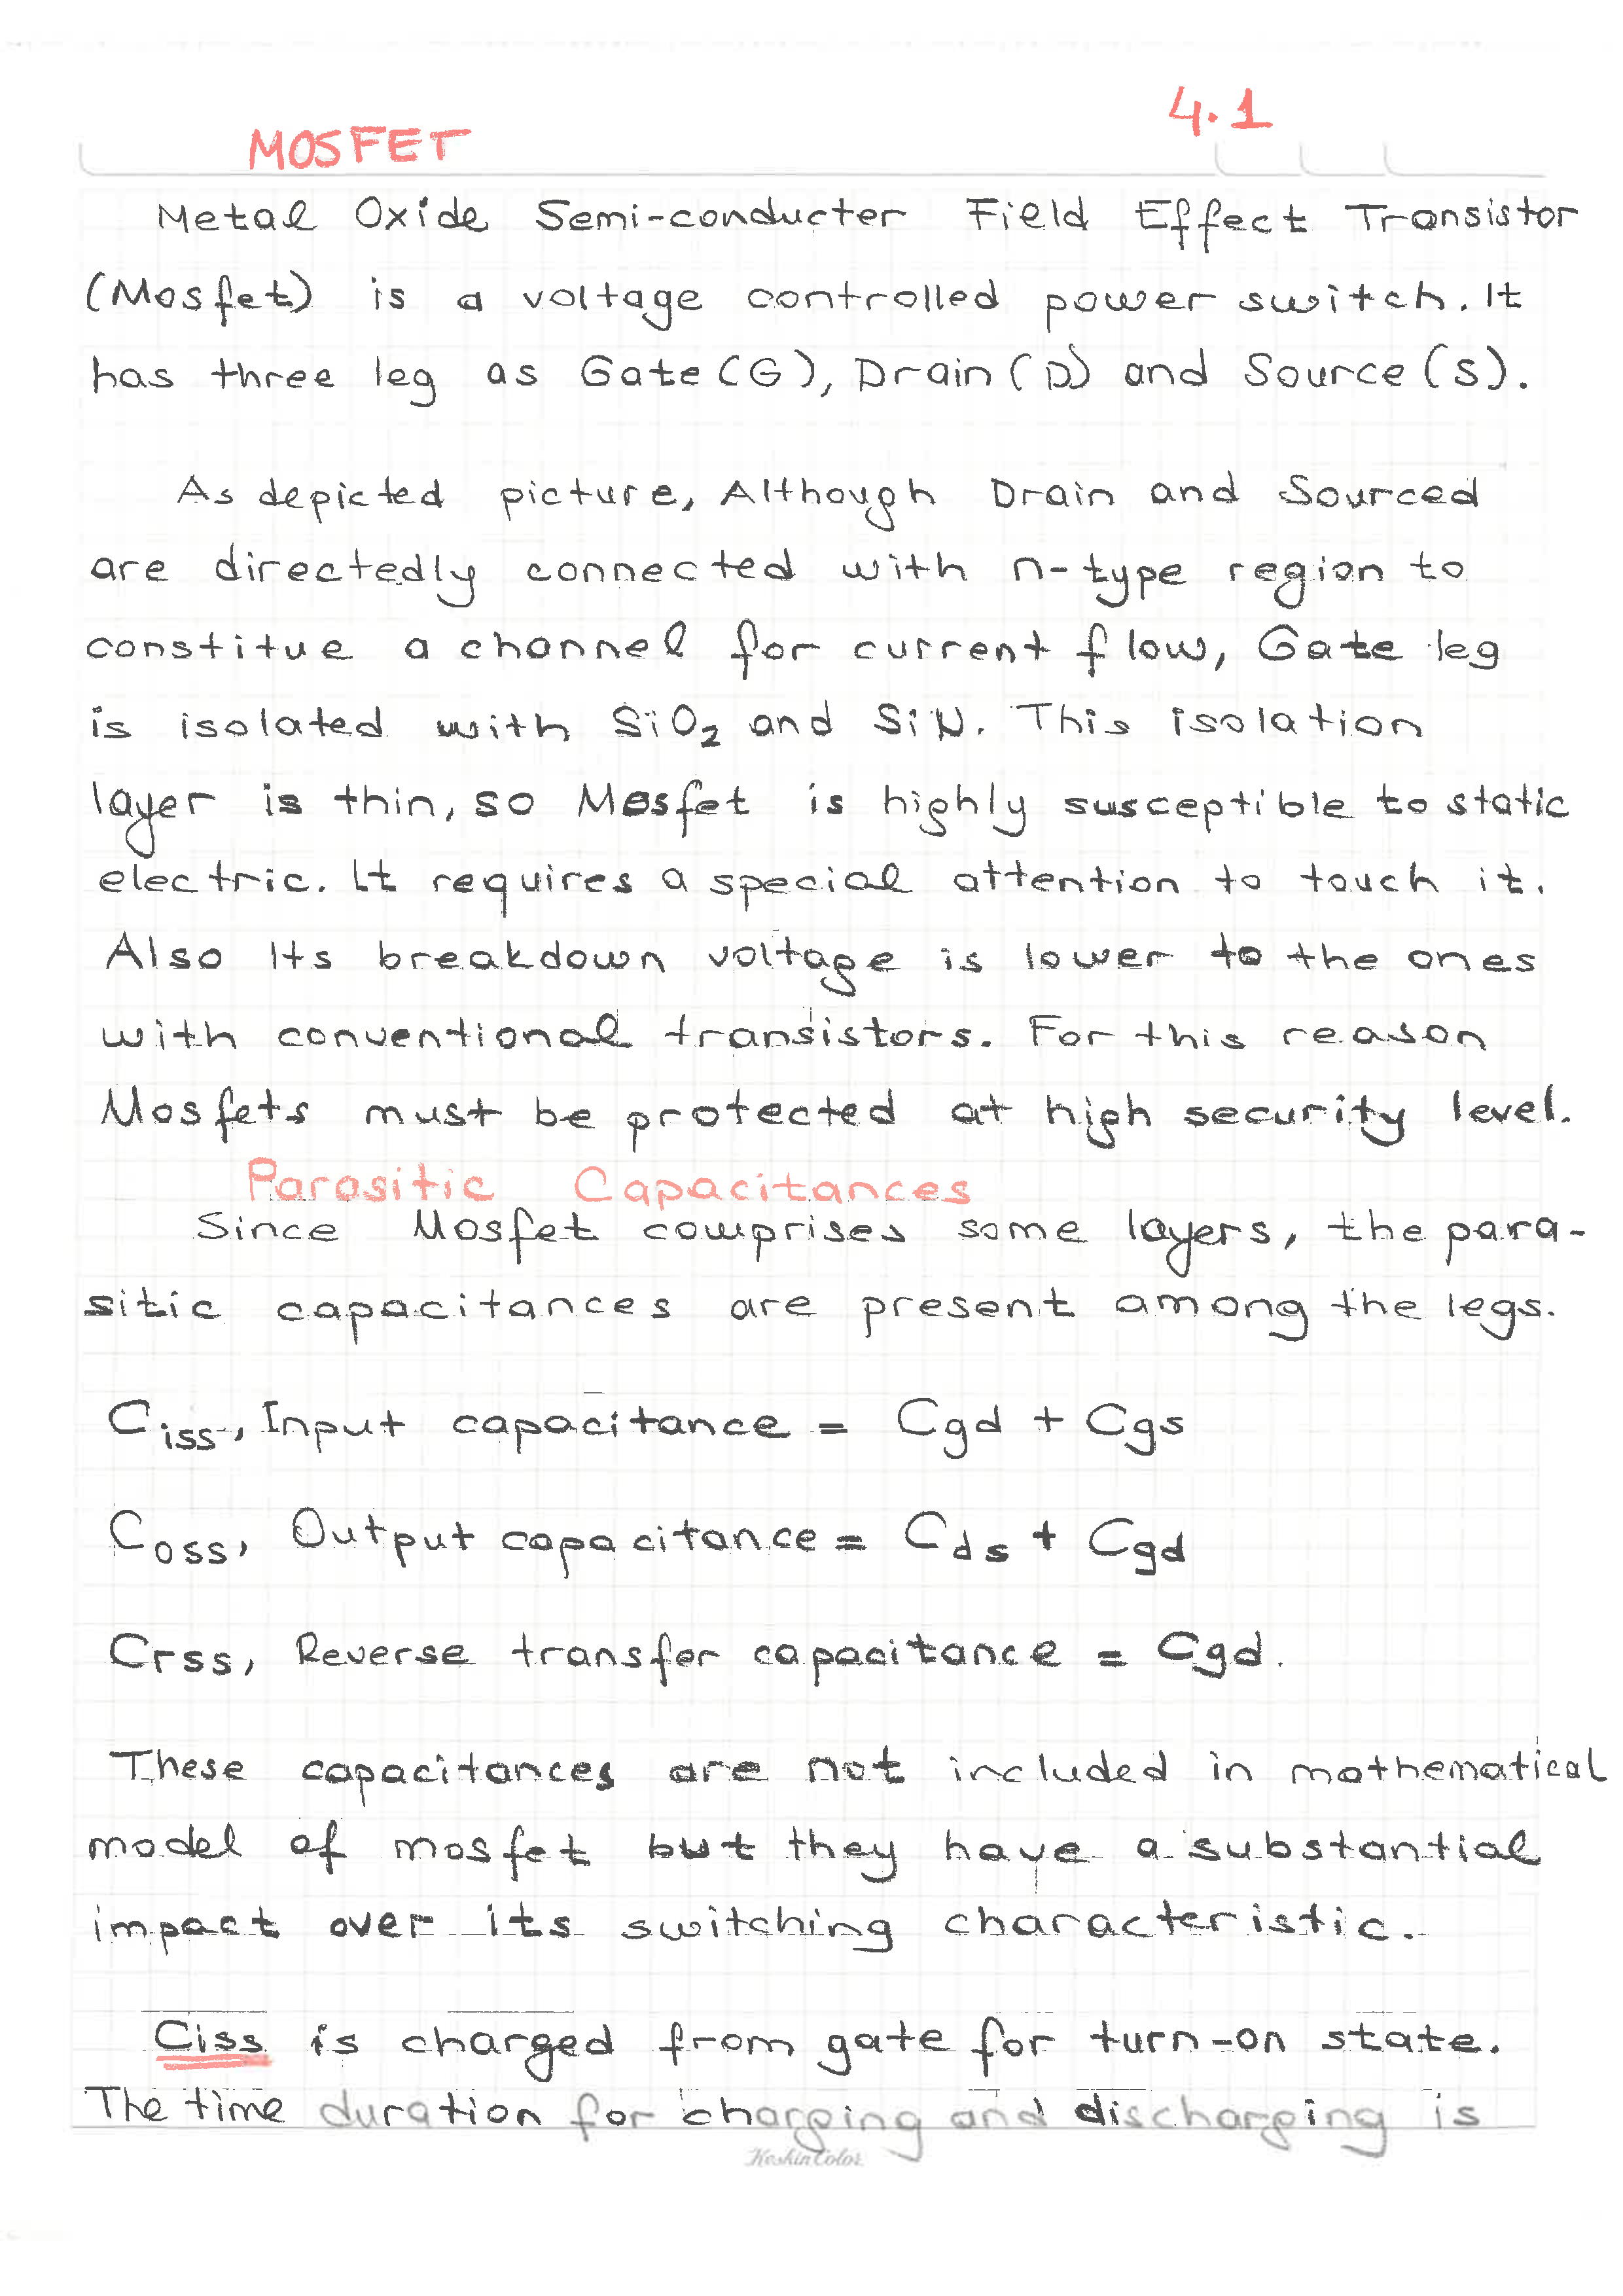 4.1
MOSFET
Metal Oxide Semi-conducter Field Effect Transistor
(Mosfet) is a voltage controlled power switch. It
has three leg as Gate (G), Drain (D) and Source (S).
As depicted picture, Although Drain and Sourced
are directedly connected with n-type region to
constitue a channel for current flow, Gate leg
is isolated with SiO₂ and SiN. This isolation
layer is thin, so Mosfet is highly susceptible to static
electric. It requires a special attention to touch it.
Also Its breakdown voltage is lower to the ones
with conventional transistors. For this reason
Mosfets must be protected at high security level.
Parasitic Capacitances
Since Mosfet comprises some layers, the para-
sitic capacitances are present among the legs.
Ciss, Input capacitance = Cgd + Cgs
Coss, Output capacitance = Cds + Cgd
Crss, Reverse transfer capacitance = Cgd.
These capacitances are not included in mathematical
model of mosfet but they have a substantial
impact over its switching characteristic.
Ciss is charged from gate for turn-on state.
The time duration for charging and discharging is
KeskinColor